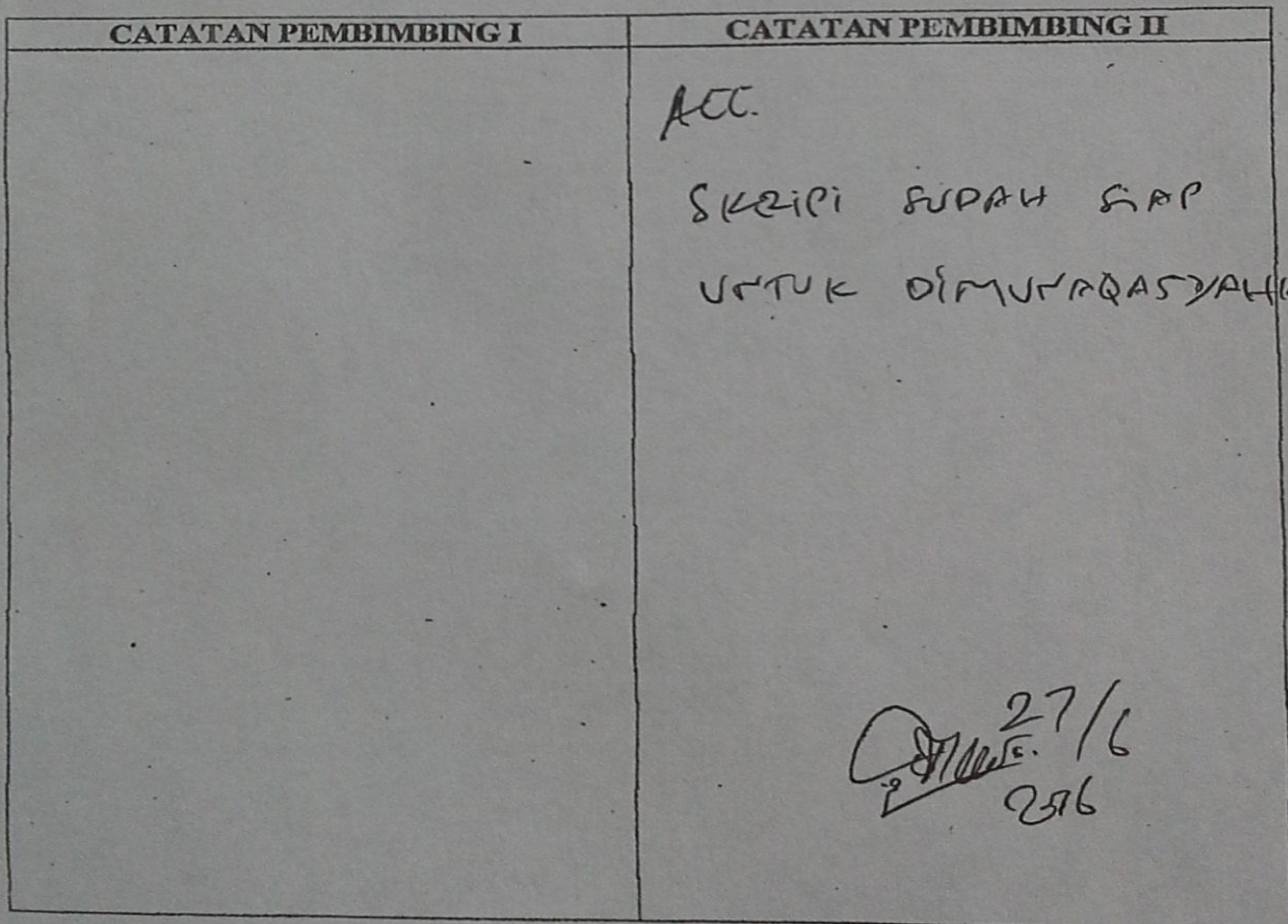 CATATAN PEMBIMBING I
CATATAN PEMBIMBING II
ACC.
SKRIPSI SUDAH SIAP
UNTUK DIMUNAQASYAH
27/6
2016